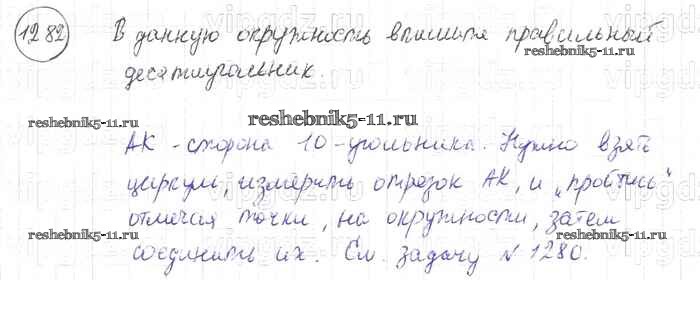 1282 В данную окружность впишите правильный
десятиугольник.
reshebnik5-11.ru
reshebnik5-11.ru
reshebnik5-11.ru
АК - сторона 10-угольника. Нужно взять
циркуль, измерить отрезок АК, и „пройтись“
reshebnik5-11.ru
отмечая точки, на окружности, затем
reshebnik5-11.ru
reshebnik5-11.ru
соединить их. См. задачу №1280.